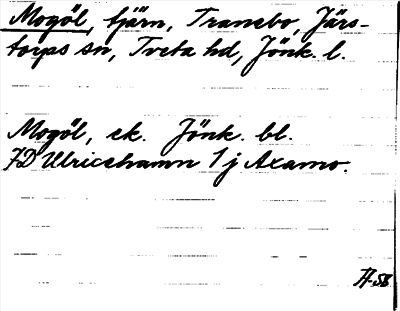 Mogöl, tjärn, Tranebo, Järs-
torps sn, Tveta hd, Jönk. l.
Mogöl, ek. Jönk. bl.
7D Ulricehamn 1 j Axamo.